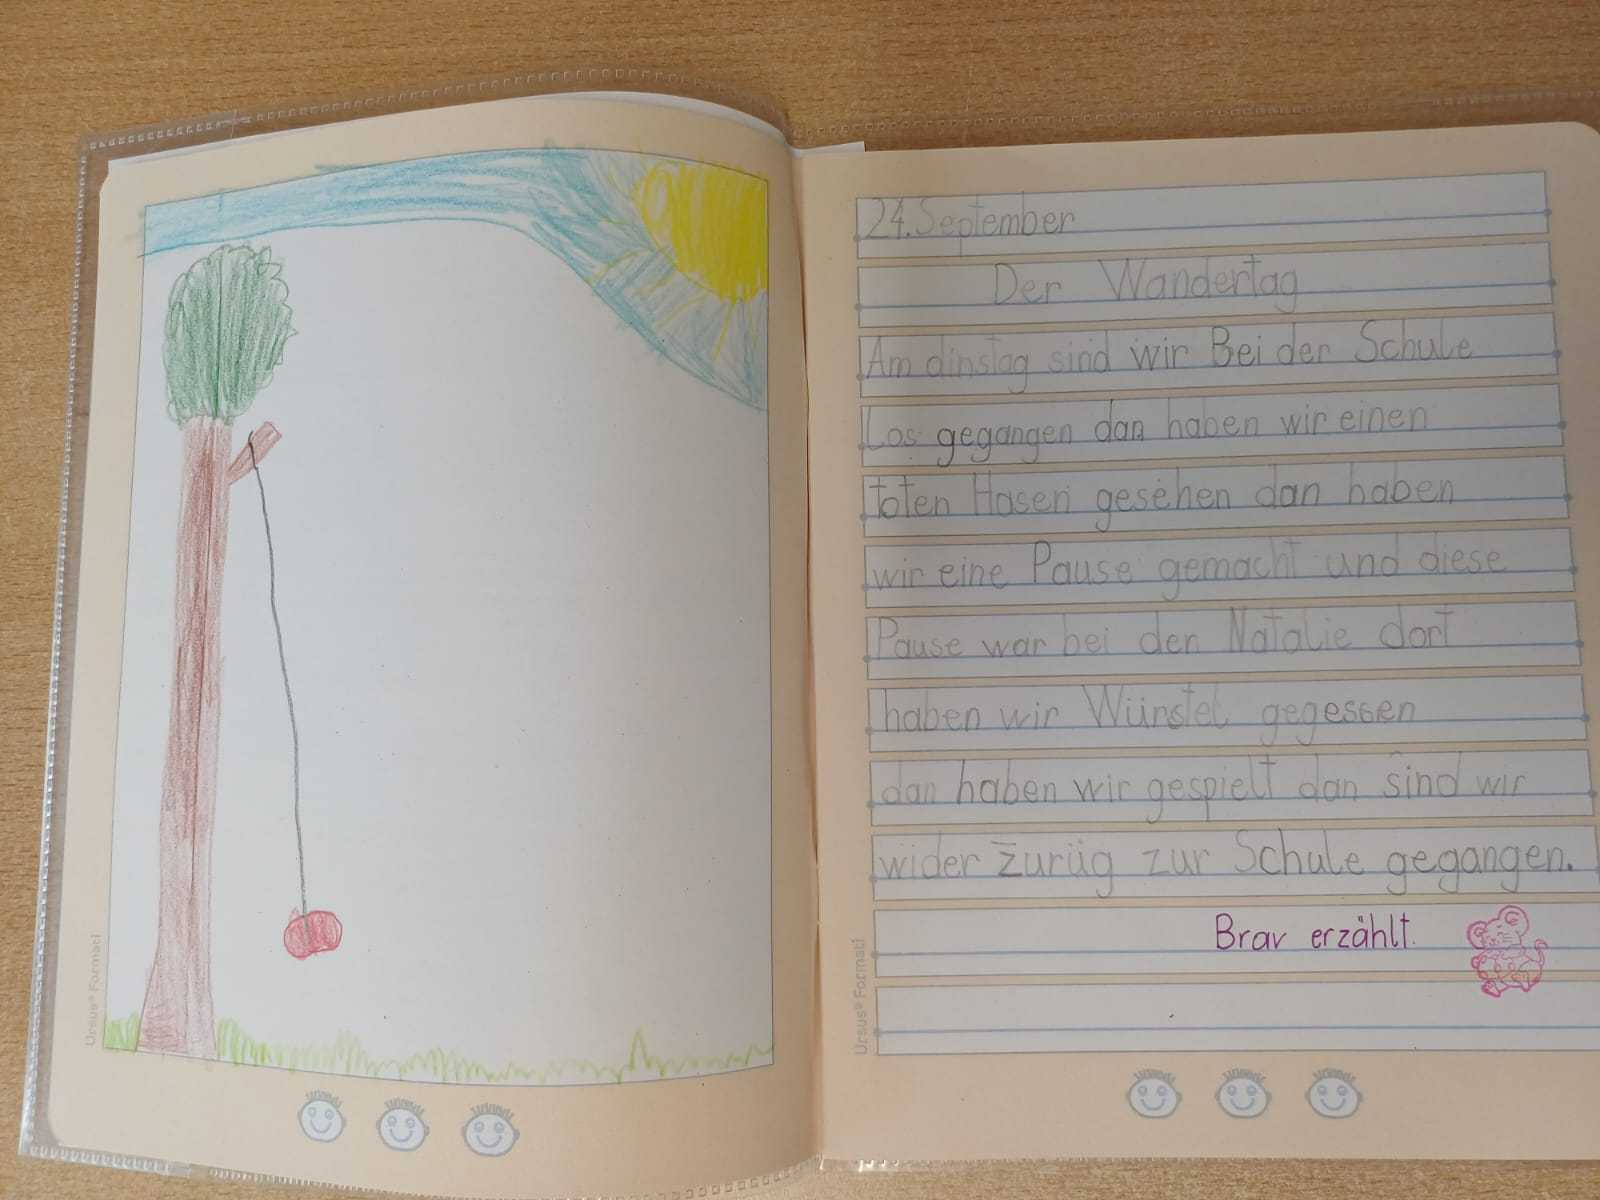 24. September
Der Wandertag
Am dinstag sind wir Bei der Schule
Los gegangen dan haben wir einen
toten Hasen gesehen dan haben
wir eine Pause gemacht und diese
Pause war bei der Natalie dort
haben wir Würstel gegessen
dan haben wir gespielt dan sind wir
wider zurüg zur Schule gegangen.
Brav erzählt.
Ursus® Formati
Ursus® Formati